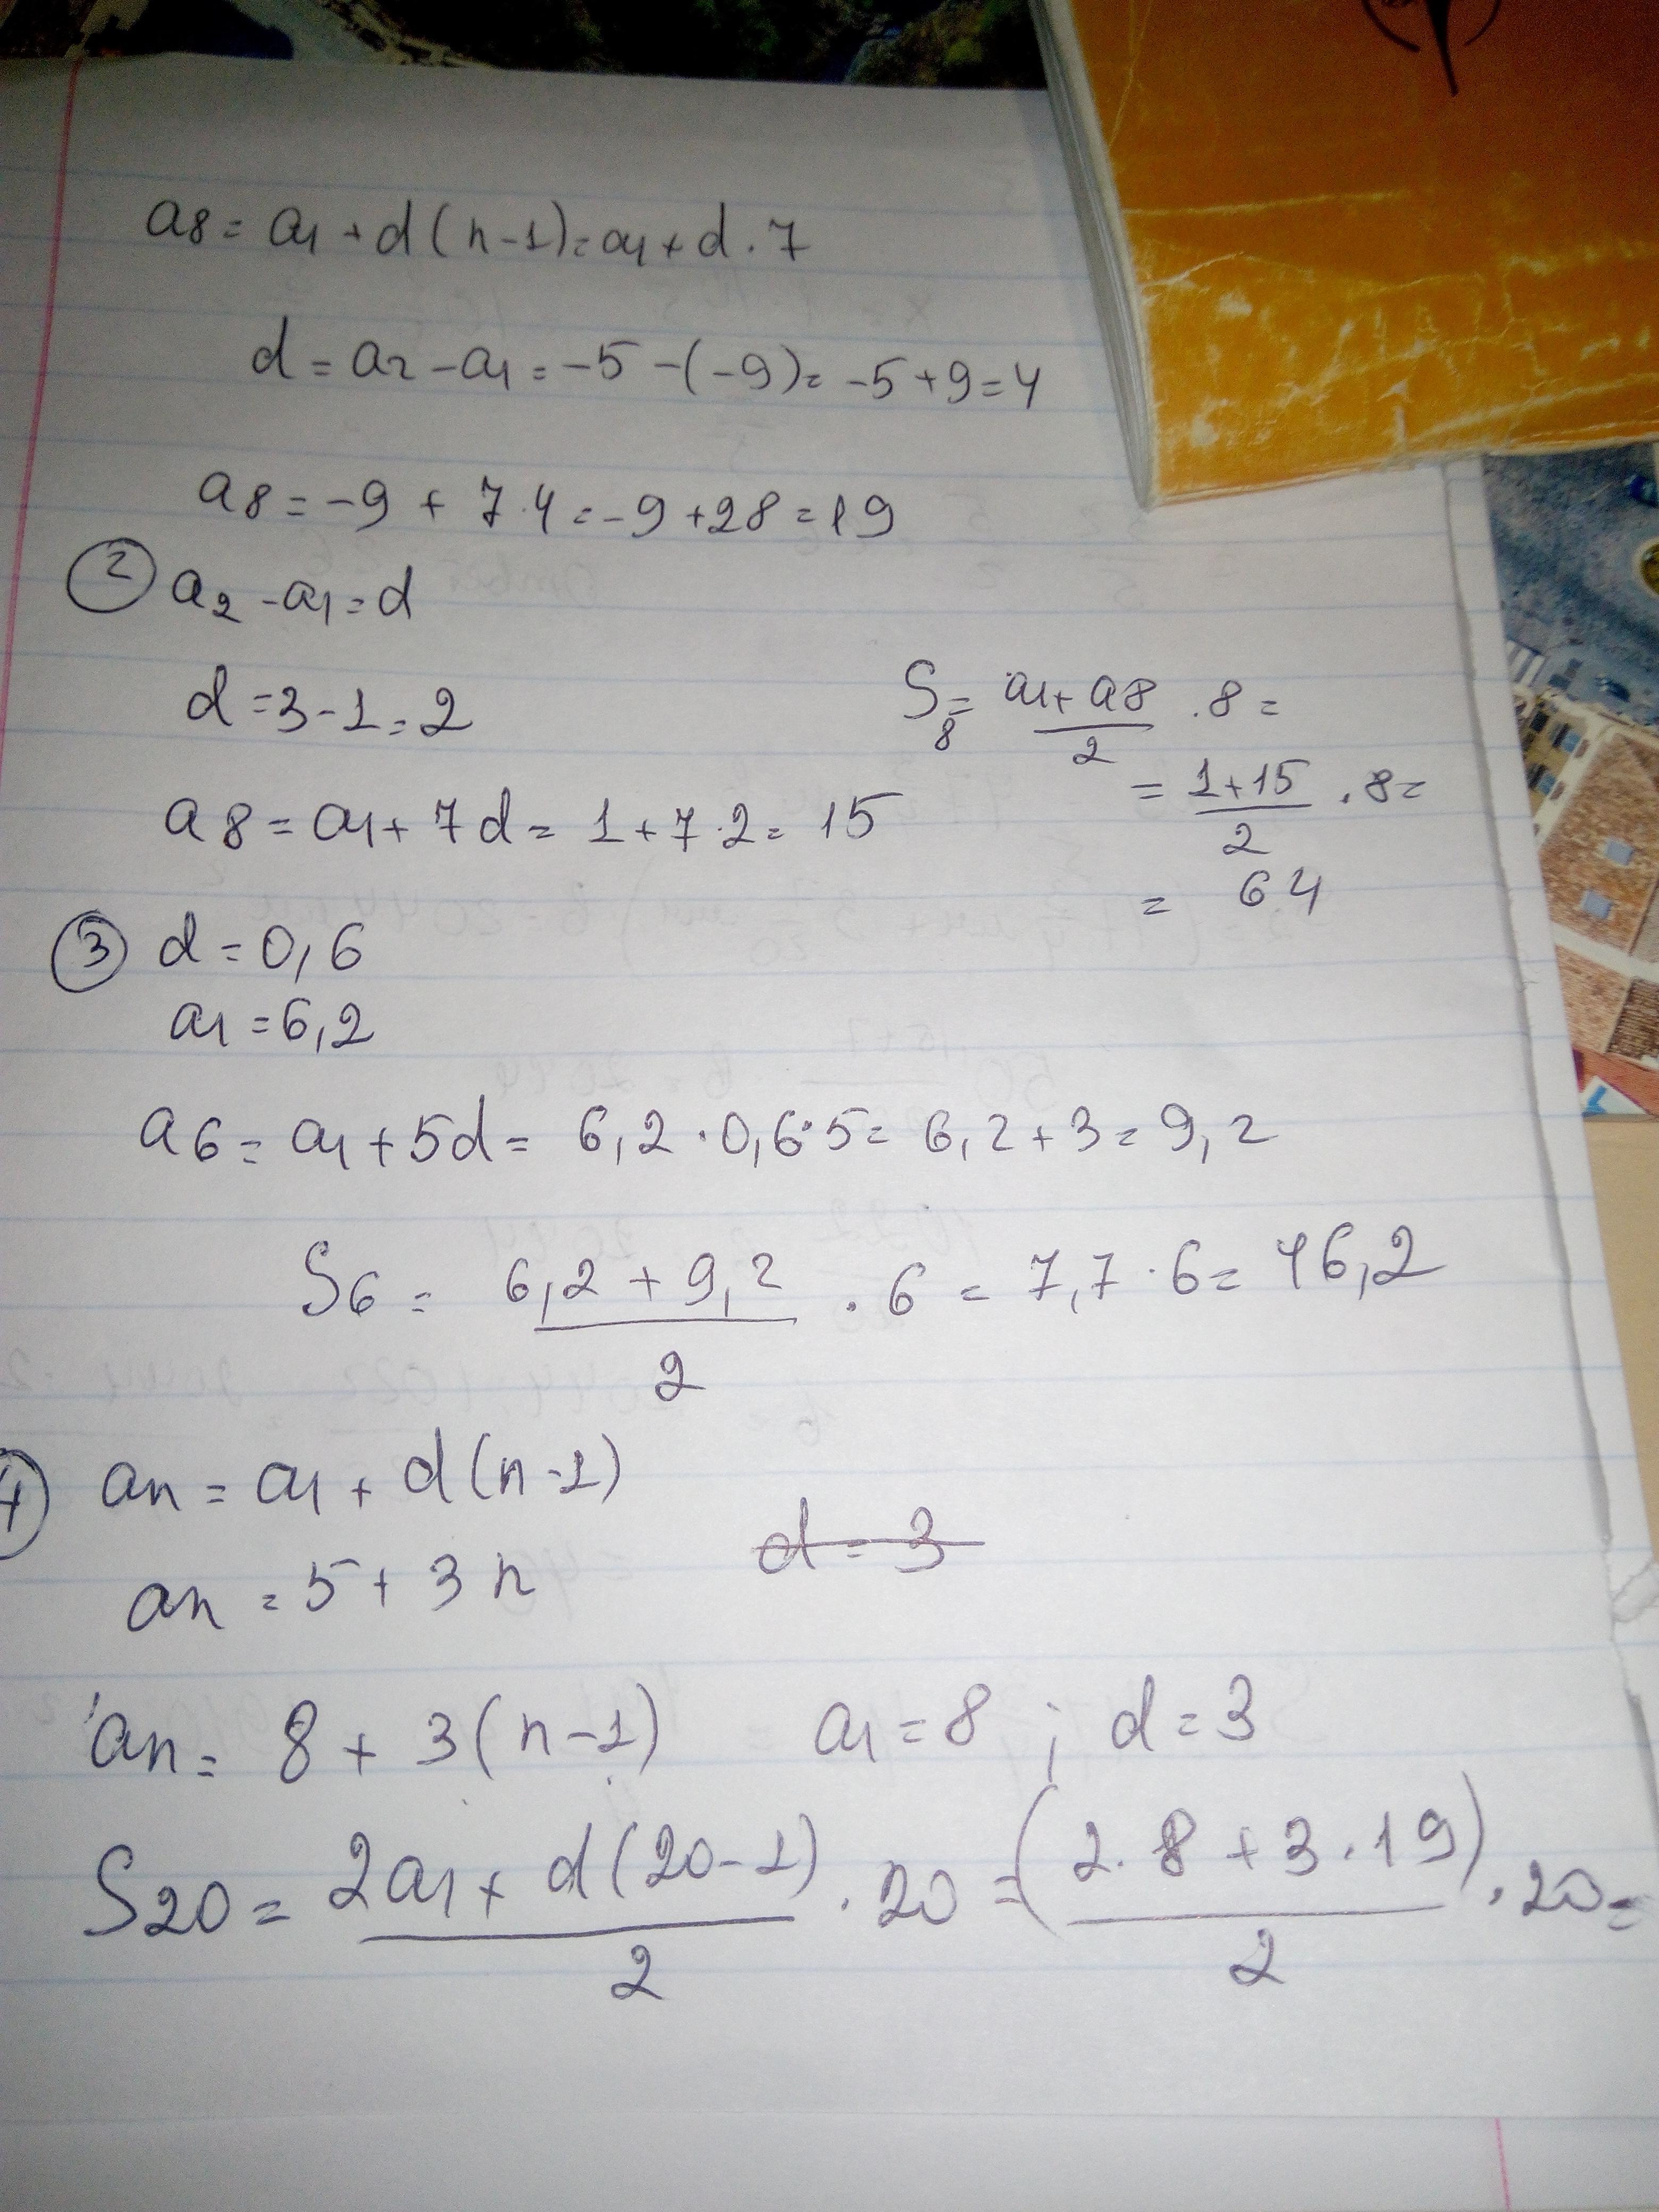 a8 = a1 + d(n-1) = a1 + d·7
d = a2 - a1 = -5 - (-9) = -5 + 9 = 4
a8 = -9 + 7·4 = -9 + 28 = 19
② a2 - a1 = d
d = 3 - 1 = 2
S8 = (a1 + a8)/2 · 8 =
= (1 + 15)/2 · 8 =
a8 = a1 + 7d = 1 + 7·2 = 15
= 64
③ d = 0,6
a1 = 6,2
a6 = a1 + 5d = 6,2 · 0,6·5 = 6,2 + 3 = 9,2
S6 = (6,2 + 9,2)/2 · 6 = 7,7 · 6 = 46,2
④ an = a1 + d(n-1)
d = 3
an = 5 + 3n
an = 8 + 3(n-1) a1 = 8 ; d = 3
S20 = (2a1 + d(20-1))/2 · 20 = ((2·8 + 3·19)/2) · 20 =